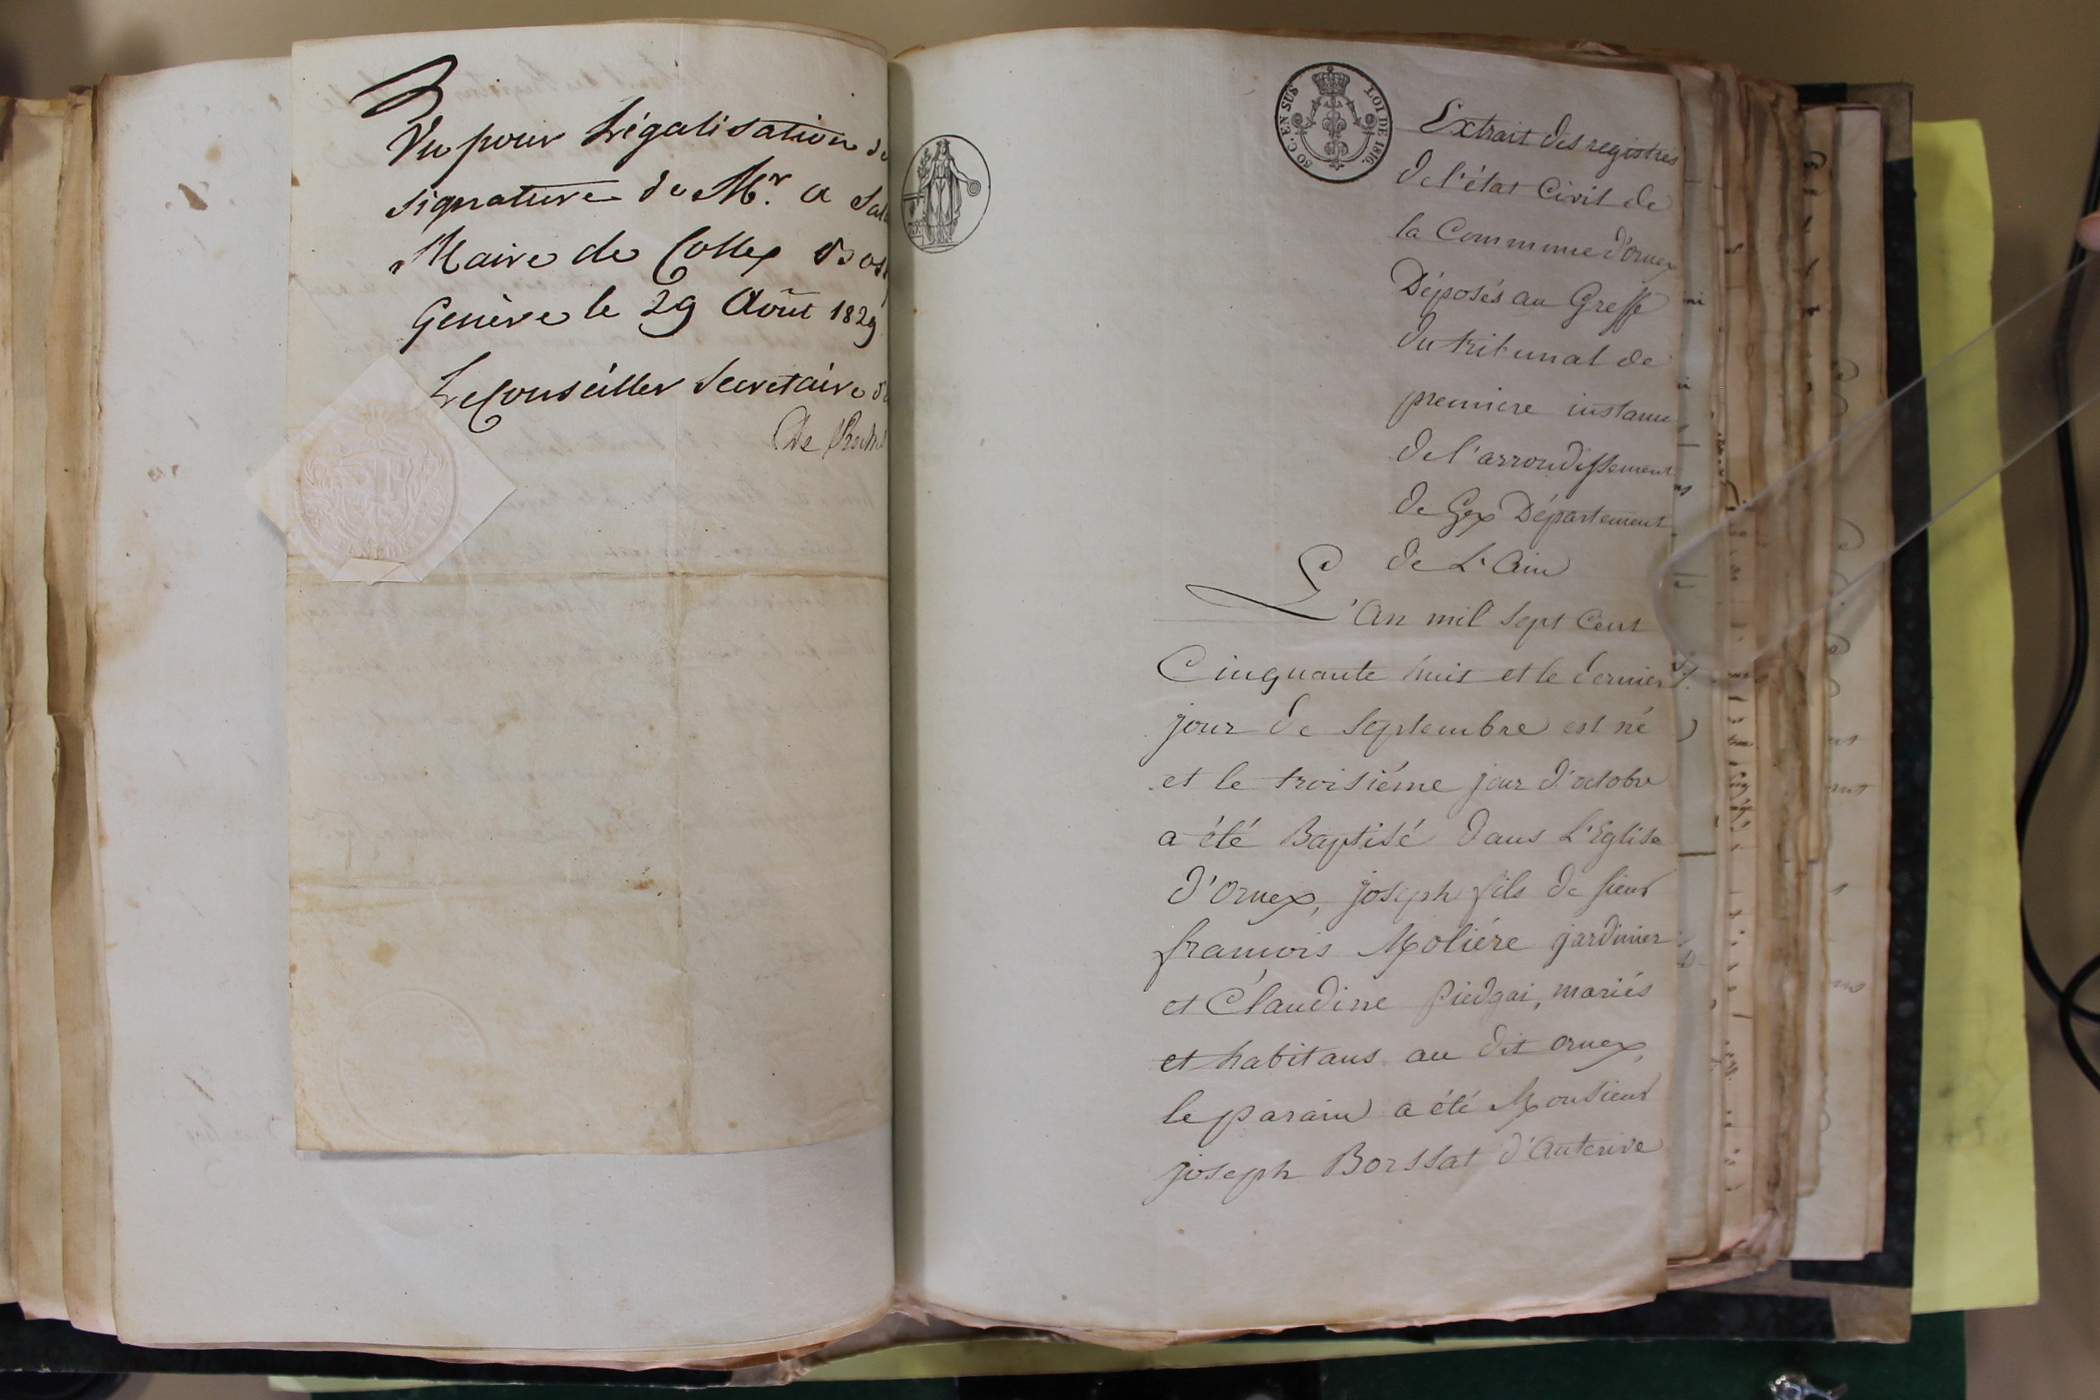 Vu pour Légalisation de
signature de Mr. a
Maire de Collex Boss
Genève le 29 Août 1829
Le Conseiller Secretaire d
De
50 C. EN SUS
LOI DE 1816.
Extrait des registres
de l'état Civil de
la Commune d'Ornex
Déposés au Greffe
du tribunal de
premiere instance
de l'arrondissement
de Gex Département
de L'Ain
L'An mil sept Cent
Cinquante huit et le dernier
jour de Septembre est né
et le troisiéme jour d'octobre
a été Baptisé dans L'Eglise
d'Ornex, joseph fils de sieur
francois Moliére jardinier
et Claudine Piedgai, mariés
et habitans au dit ornex,
le parain a été Monsieur
joseph Borssat d'Auterive